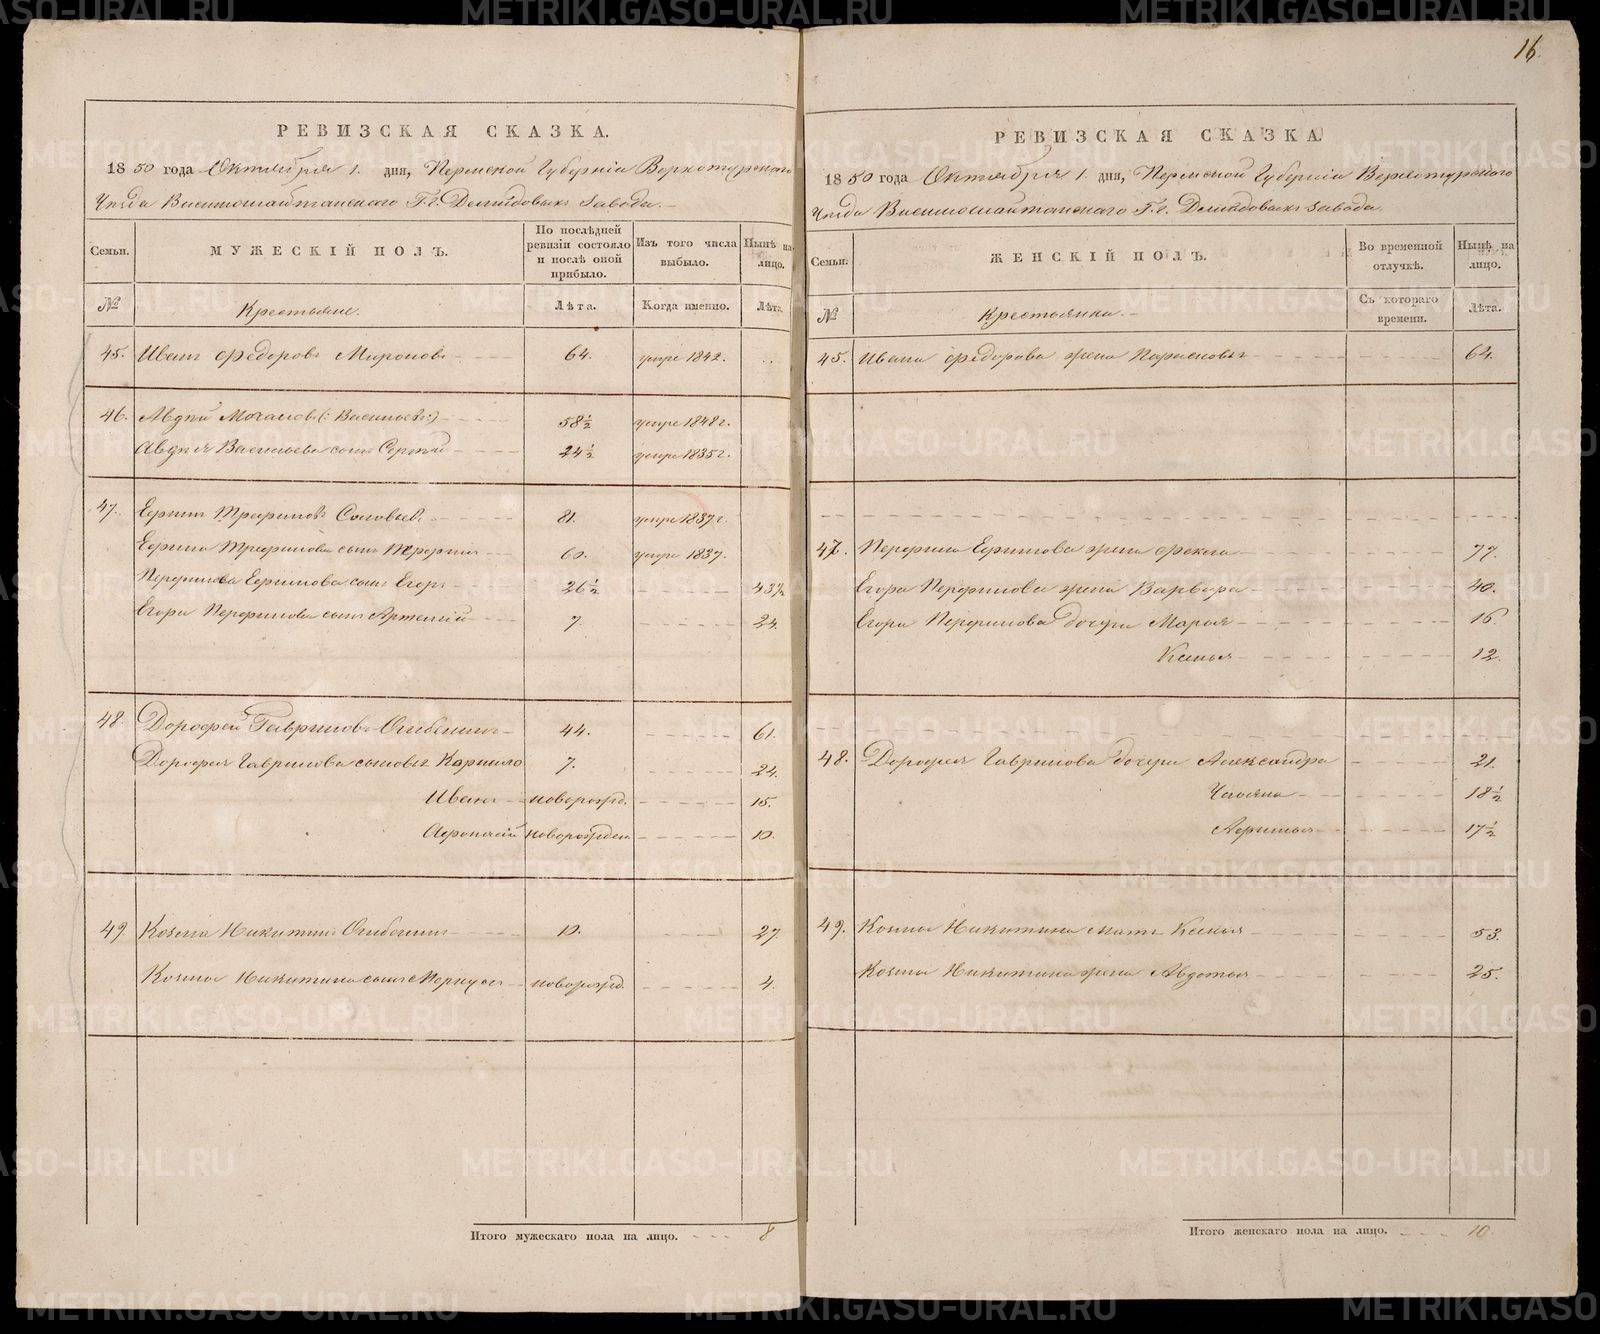 16.
РЕВИЗСКАЯ СКАЗКА.
1850 года Октября 1. дня, Пермской Губерніи Верхотурского
Уѣзда Висимошайтанского Г.г. Демидовыхъ Завода.
Семьи. МУЖЕСКІЙ ПОЛЪ. По послѣдней ревизіи состояло и послѣ оной прибыло. Изъ того числа выбыло. Нынѣ на лицо.
№ Крестьяне. Лѣта. Когда именно. Лѣта.
45. Иванъ Федоровъ Мироновъ 64. умре 1842.
46. Авдѣй (: Васильевъ:) 58½ умре 1848 г.
Авдѣя Васильева сынъ Сергѣй 24½ умре 1835 г.
47. Ефимъ Соловьевъ 81. умре 1837 г.
Ефима сынъ 60. умре 1837.
Перфилова Ефимова сынъ Егоръ 26½ 43½
Егора Перфилова сынъ Артемій 7. 24.
48. Дорофей Гавриловъ Огибенинъ 44. 61.
Дорофея Гаврилова сыновья Карпило 7. 24.
Иванъ новорожд. 15.
Афонасій новорожден. 10.
49 Козма Никитинъ Огибенинъ 10. 27
Козмы Никитина сынъ Меркурій новорожд. 4.
Итого мужескаго пола на лицо. 8
РЕВИЗСКАЯ СКАЗКА
1850 года Октября 1. дня, Пермской Губерніи Верхотурского
Уѣзда Висимошайтанского Г.г. Демидовыхъ Завода.
Семьи. ЖЕНСКІЙ ПОЛЪ. Во временной отлучкѣ. Нынѣ на лицо.
№ Крестьянки. Съ котораго времени. Лѣта.
45. Ивана Федорова жена Парасковья 64.
47. Перфила Ефимова жена Фекла 77.
Егора Перфилова жена Варвара 40.
Егора Перфилова дочери Марья 16.
Ксенья 12.
48. Дорофея Гаврилова дочери Александра 21.
Ульяна 18½
Афимья 17½
49. Козмы Никитина мать Ксенья 53.
Козмы Никитина жена Авдотья 25.
Итого женскаго пола на лицо. 10
METRIKI.GASO-URAL.RU